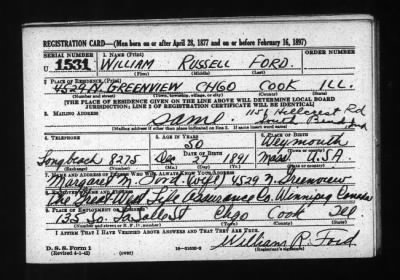 REGISTRATION CARD—(Men born on or after April 28, 1877 and on or before February 16, 1897)
SERIAL NUMBER 1. NAME (Print) ORDER NUMBER
U 1531 WILLIAM RUSSELL FORD.
(First) (Middle) (Last)
2. PLACE OF RESIDENCE (Print)
4529 N. GREENVIEW CHGO COOK ILL.
(Number and street) (Town, township, village, or city) (County) (State)
[THE PLACE OF RESIDENCE GIVEN ON THE LINE ABOVE WILL DETERMINE LOCAL BOARD
JURISDICTION; LINE 2 OF REGISTRATION CERTIFICATE WILL BE IDENTICAL]
3. MAILING ADDRESS
same. 1158 Hillcrest Rd
South Bend, Ind
[Mailing address if other than place indicated on line 2. If same insert word same]
4. TELEPHONE 5. AGE IN YEARS 6. PLACE OF BIRTH
50 Weymouth
DATE OF BIRTH
Longbeach 8275 Dec 27 1891 Mass U.S.A.
(Exchange) (Number) (Mo.) (Day) (Yr.) (Town or county) (State or country)
7. NAME AND ADDRESS OF PERSON WHO WILL ALWAYS KNOW YOUR ADDRESS
Margaret M. Ford (wife) 4529 N. Greenview
8. EMPLOYER'S NAME AND ADDRESS
The Great West Life Assurance Co. Winnipeg Canada
9. PLACE OF EMPLOYMENT OR BUSINESS
135 So. LaSalle St Chgo Cook Ill.
(Number and street or R. F. D. number) (Town) (County) (State)
I AFFIRM THAT I HAVE VERIFIED ABOVE ANSWERS AND THAT THEY ARE TRUE.
D. S. S. Form 1
(Revised 4-1-42) (over) William R. Ford